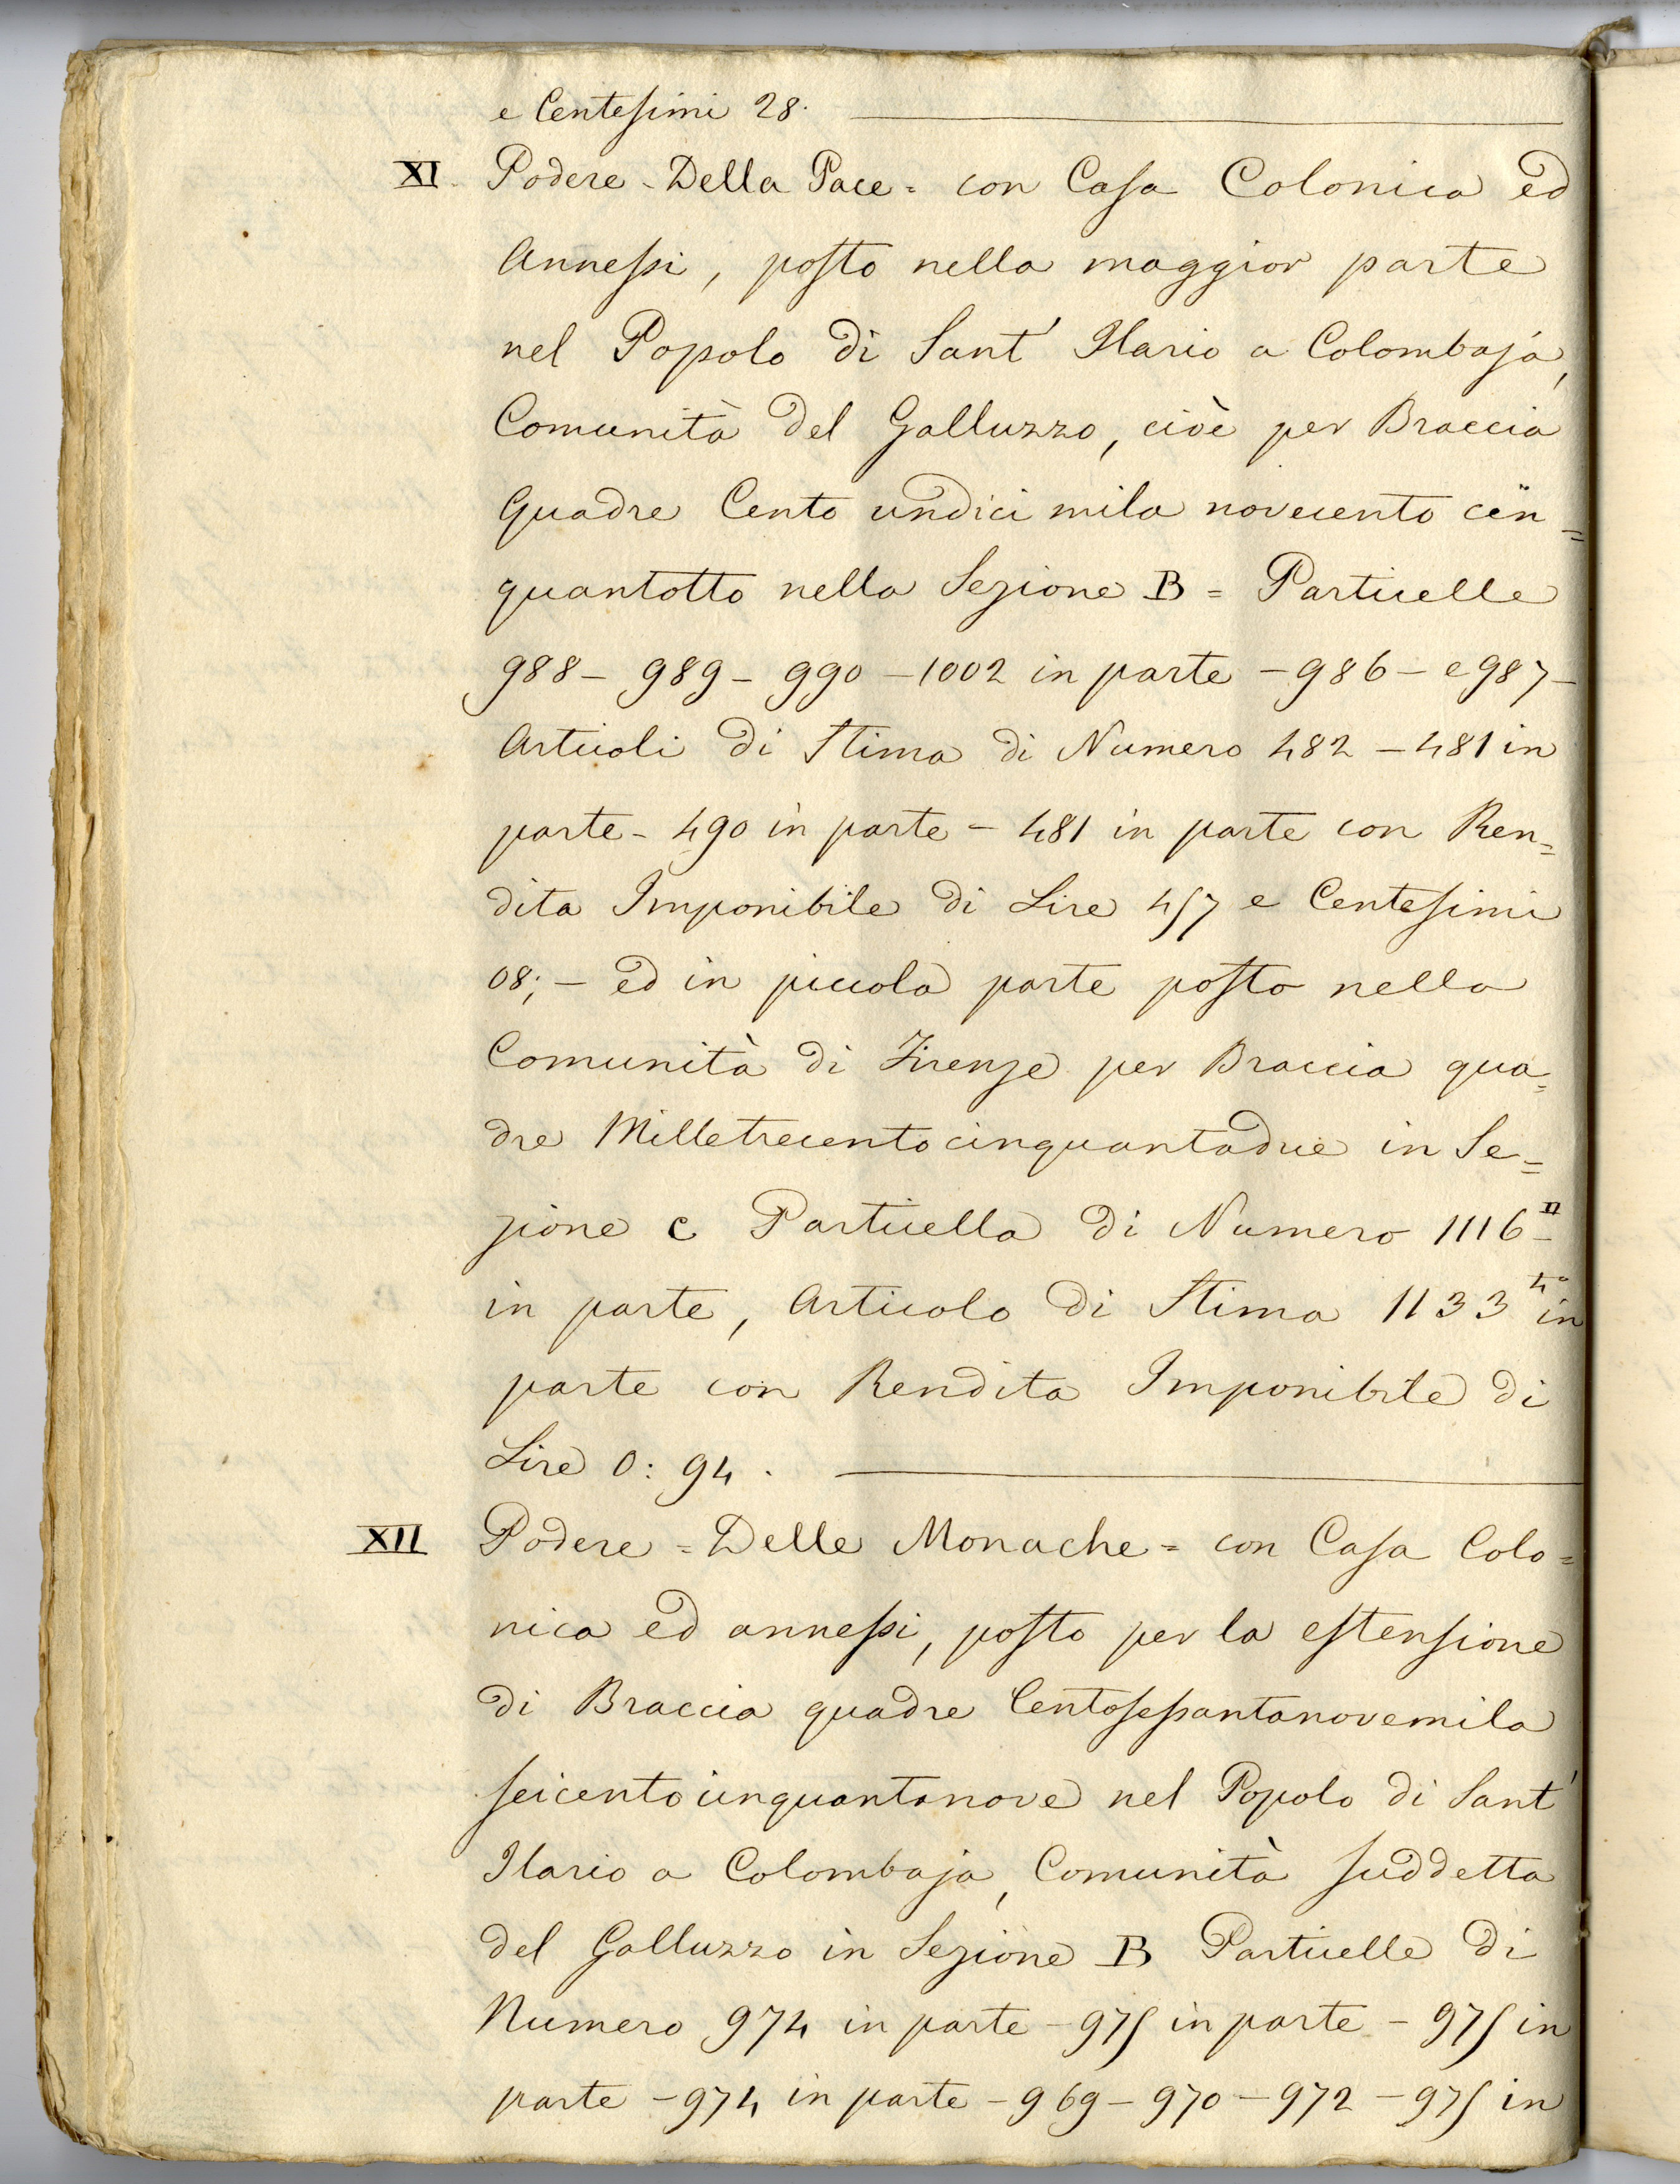 e Centesimi 28.
XI. Podere - Della Pace = con Casa Colonica ed
Annessi, posto nella maggior parte
nel Popolo di Sant' Ilario a Colombaja,
Comunità del Galluzzo, cioè per Braccia
Quadre Cento undici mila novecento cin=
quantotto nella Sezione B = Particelle
988 - 989 - 990 - 1002 in parte - 986 - e 987 -
Articoli di Stima di Numero 482 - 481 in
parte - 490 in parte - 481 in parte con Ren=
dita Imponibile di Lire 457 e Centesimi
08; - ed in piccola parte posto nella
Comunità di Firenze per Braccia qua=
dre Milletrecentocinquantadue in Se=
zione C Particella di Numero 1116 II
in parte, Articolo di Stima 1133 4° in
parte con Rendita Imponibile di
Lire 0: 94.
XII Podere = Delle Monache = con Casa Colo=
nica ed annessi, posto per la estensione
di Braccia quadre Centosessantanovemila
seicentocinquantanove nel Popolo di Sant'
Ilario a Colombaja, Comunità suddetta
del Galluzzo in Sezione B Particelle di
Numero 974 in parte - 975 in parte - 975 in
parte - 974 in parte - 969 - 970 - 972 - 975 in